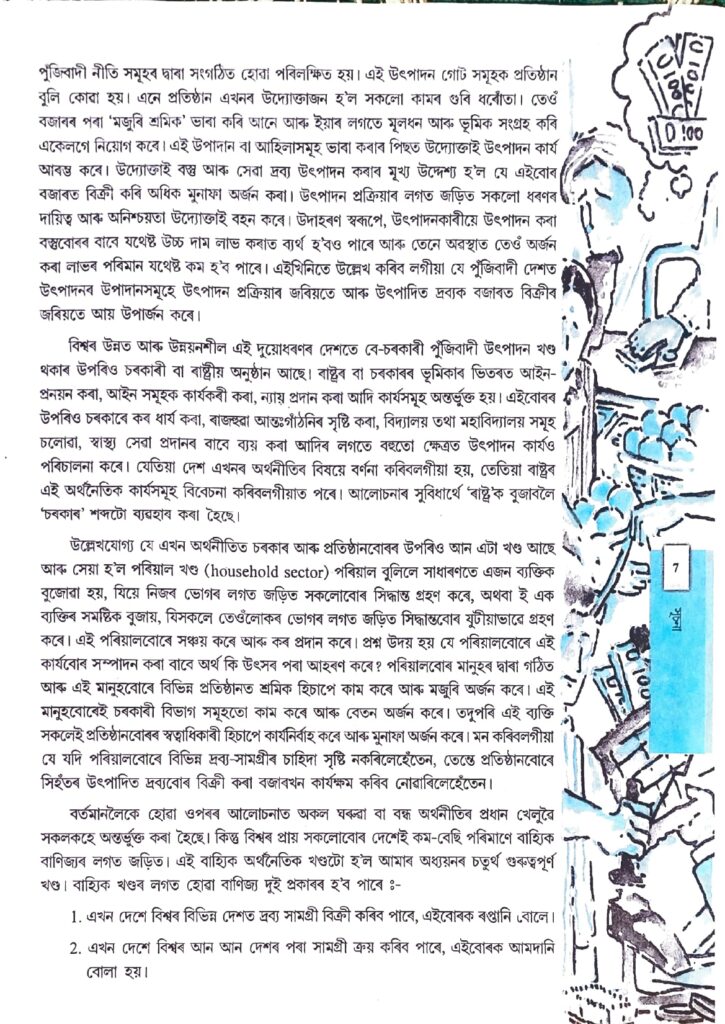 পুঁজিবাদী নীতি সমূহৰ দ্বাৰা সংগঠিত হোৱা পৰিলক্ষিত হয়। এই উৎপাদন গোট সমূহক প্ৰতিষ্ঠান
বুলি কোৱা হয়। এনে প্ৰতিষ্ঠান এখনৰ উদ্যোক্তাজন হ'ল সকলো কামৰ গুৰি ধৰোঁতা। তেওঁ
বজাৰৰ পৰা ‘মজুৰি শ্ৰমিক’ ভাবা কৰি আনে আৰু ইয়াৰ লগতে মূলধন আৰু ভূমিক সংগ্ৰহ কৰি
একেলগে নিয়োগ কৰে। এই উপাদান বা আহিলাসমূহ ভাবা কৰাৰ পিছত উদ্যোক্তাই উৎপাদন কাৰ্য
আৰম্ভ কৰে। উদ্যোক্তাই বস্তু আৰু সেৱা দ্ৰব্য উৎপাদন কৰাৰ মুখ্য উদ্দেশ্য হ'ল যে এইবোৰ
বজাৰত বিক্ৰী কৰি অধিক মুনাফা অৰ্জন কৰা। উৎপাদন প্ৰক্ৰিয়াৰ লগত জড়িত সকলো ধৰণৰ
দায়িত্ব আৰু অনিশ্চয়তা উদ্যোক্তাই বহন কৰে। উদাহৰণ স্বৰূপে, উৎপাদনকাৰীয়ে উৎপাদন কৰা
বস্তুবোৰৰ বাবে যথেষ্ট উচ্চ দাম লাভ কৰাত ব্যৰ্থ হ'বও পাৰে আৰু তেনে অৱস্থাত তেওঁ অৰ্জন
কৰা লাভৰ পৰিমান যথেষ্ট কম হ'ব পাৰে। এইখিনিতে উল্লেখ কৰিব লগীয়া যে পুঁজিবাদী দেশত
উৎপাদনৰ উপাদানসমূহে উৎপাদন প্ৰক্ৰিয়াৰ জৰিয়তে আৰু উৎপাদিত দ্ৰব্যক বজাৰত বিক্ৰীৰ
জৰিয়তে আয় উপাৰ্জন কৰে।
বিশ্বৰ উন্নত আৰু উন্নয়নশীল এই দুয়োধৰণৰ দেশতে বে-চৰকাৰী পুঁজিবাদী উৎপাদন খণ্ড
থকাৰ উপৰিও চৰকাৰী বা ৰাষ্ট্ৰীয় অনুষ্ঠান আছে। ৰাষ্ট্ৰৰ বা চৰকাৰৰ ভূমিকাৰ ভিতৰত আইন-
প্ৰনয়ন কৰা, আইন সমূহক কাৰ্যকৰী কৰা, ন্যায় প্ৰদান কৰা আদি কাৰ্যসমূহ অন্তৰ্ভুক্ত হয়। এইবোৰৰ
উপৰিও চৰকাৰে কৰ ধাৰ্য কৰা, ৰাজহুৱা আন্তঃগাঁঠনিৰ সৃষ্টি কৰা, বিদ্যালয় তথা মহাবিদ্যালয় সমূহ
চলোৱা, স্বাস্থ্য সেৱা প্ৰদানৰ বাবে ব্যয় কৰা আদিৰ লগতে বহুতো ক্ষেত্ৰত উৎপাদন কাৰ্যও
পৰিচালনা কৰে। যেতিয়া দেশ এখনৰ অৰ্থনীতিৰ বিষয়ে বৰ্ণনা কৰিবলগীয়া হয়, তেতিয়া ৰাষ্ট্ৰৰ
এই অৰ্থনৈতিক কাৰ্যসমূহ বিবেচনা কৰিবলগীয়াত পৰে। আলোচনাৰ সুবিধাৰ্থে ‘ৰাষ্ট্ৰ’ক বুজাবলৈ
‘চৰকাৰ’ শব্দটো ব্যৱহাৰ কৰা হৈছে।
উল্লেখযোগ্য যে এখন অৰ্থনীতিত চৰকাৰ আৰু প্ৰতিষ্ঠানবোৰৰ উপৰিও আন এটা খণ্ড আছে
আৰু সেয়া হ'ল পৰিয়াল খণ্ড (household sector) পৰিয়াল বুলিলে সাধাৰণতে এজন ব্যক্তিক
বুজোৱা হয়, যিয়ে নিজৰ ভোগৰ লগত জড়িত সকলোবোৰ সিদ্ধান্ত গ্ৰহণ কৰে, অথবা ই এক
ব্যক্তিৰ সমষ্টিক বুজায়, যিসকলে তেওঁলোকৰ ভোগৰ লগত জড়িত সিদ্ধান্তবোৰ যুটীয়াভাৱে গ্ৰহণ
কৰে। এই পৰিয়ালবোৰে সঞ্চয় কৰে আৰু কৰ প্ৰদান কৰে। প্ৰশ্ন উদয় হয় যে পৰিয়ালবোৰে এই
কাৰ্যবোৰ সম্পাদন কৰা বাবে অৰ্থ কি উৎসৰ পৰা আহৰণ কৰে? পৰিয়ালবোৰ মানুহৰ দ্বাৰা গঠিত
আৰু এই মানুহবোৰে বিভিন্ন প্ৰতিষ্ঠানত শ্ৰমিক হিচাপে কাম কৰে আৰু মজুৰি অৰ্জন কৰে। এই
মানুহবোৰেই চৰকাৰী বিভাগ সমূহতো কাম কৰে আৰু বেতন অৰ্জন কৰে। তদুপৰি এই ব্যক্তি
সকলেই প্ৰতিষ্ঠানবোৰৰ স্বত্বাধিকাৰী হিচাপে কাৰ্যনিৰ্বাহ কৰে আৰু মুনাফা অৰ্জন কৰে। মন কৰিবলগীয়া
যে যদি পৰিয়ালবোৰে বিভিন্ন দ্ৰব্য-সামগ্ৰীৰ চাহিদা সৃষ্টি নকৰিলেহেঁতেন, তেন্তে প্ৰতিষ্ঠানবোৰে
সিহঁতৰ উৎপাদিত দ্ৰব্যবোৰ বিক্ৰী কৰা বজাৰখন কাৰ্যক্ষম কৰিব নোৱাৰিলেহেঁতেন।
বৰ্তমানলৈকে হোৱা ওপৰৰ আলোচনাত অকল ঘৰুৱা বা বন্ধ অৰ্থনীতিৰ প্ৰধান খেলুৱৈ
সকলকহে অন্তৰ্ভুক্ত কৰা হৈছে। কিন্তু বিশ্বৰ প্ৰায় সকলোবোৰ দেশেই কম-বেছি পৰিমাণে বাহ্যিক
বাণিজ্যৰ লগত জড়িত। এই বাহ্যিক অৰ্থনৈতিক খণ্ডটো হ'ল আমাৰ অধ্যয়নৰ চতুৰ্থ গুৰুত্বপূৰ্ণ
খণ্ড। বাহ্যিক খণ্ডৰ লগত হোৱা বাণিজ্য দুই প্ৰকাৰৰ হ'ব পাৰে ঃ-
1. এখন দেশে বিশ্বৰ বিভিন্ন দেশত দ্ৰব্য সামগ্ৰী বিক্ৰী কৰিব পাৰে, এইবোৰক ৰপ্তানি বোলে।
2. এখন দেশে বিশ্বৰ আন আন দেশৰ পৰা সামগ্ৰী ক্ৰয় কৰিব পাৰে, এইবোৰক আমদানি
বোলা হয়।
7
সূচনা